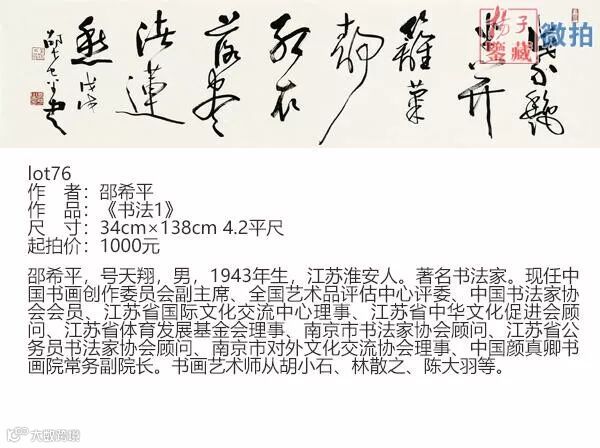 紫艳
半开
篱菊
静
红衣
落尽
渚莲
愁
戊戌
邵希平书
揚子
鉴藏
微拍
lot76
作　者：邵希平
作　品：《书法1》
尺　寸：34cm×138cm 4.2平尺
起拍价：1000元
邵希平，号天翔，男，1943年生，江苏淮安人。著名书法家。现任中
国书画创作委员会副主席、全国艺术品评估中心评委、中国书法家协
会会员、江苏省国际文化交流中心理事、江苏省中华文化促进会顾
问、江苏省体育发展基金会理事、南京市书法家协会顾问、江苏省公
务员书法家协会顾问、南京市对外文化交流协会理事、中国颜真卿书
画院常务副院长。书画艺术师从胡小石、林散之、陈大羽等。
大数跨境